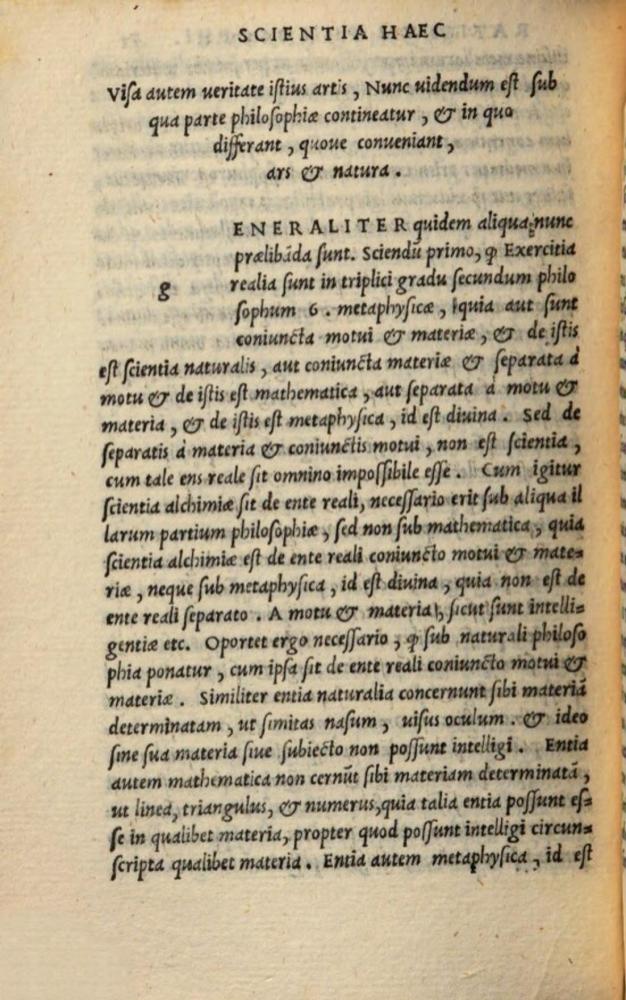 SCIENTIA HAEC
Viſa autem ueritate iſtius artis, Nunc uidendum eſt ſub
qua parte philoſophiæ contineatur, & in quo
differant, quoue conueniant,
ars & natura.
g
ENERALITER quidem aliqua nunc
prælibãda ſunt. Sciendũ primo, ꝙ Exercitia
realia ſunt in triplici gradu ſecundum philo
ſophum 6. metaphyſicæ, quia aut ſunt
coniuncta motui & materiæ, & de iſtis
eſt ſcientia naturalis, aut coniuncta materiæ & ſeparata à
motu & de iſtis eſt mathematica, aut ſeparata à motu &
materia, & de iſtis eſt metaphyſica, id eſt diuina. Sed de
ſeparatis à materia & coniunctis motui, non eſt ſcientia,
cum tale ens reale ſit omnino impoſſibile eſſe. Cum igitur
ſcientia alchimiæ ſit de ente reali, neceſſario erit ſub aliqua il
larum partium philoſophiæ, ſed non ſub mathematica, quia
ſcientia alchimiæ eſt de ente reali coniuncto motui & mate=
riæ, neque ſub metaphyſica, id eſt diuina, quia non eſt de
ente reali ſeparato. A motu & materia, ſicut ſunt intelli=
gentiæ etc. Oportet ergo neceſſario, ꝙ ſub naturali philoſo
phia ponatur, cum ipſa ſit de ente reali coniuncto motui &
materiæ. Similiter entia naturalia concernunt ſibi materiã
determinatam, ut ſimitas naſum, uiſus oculum. & ideo
ſine ſua materia ſiue ſubiecto non poſſunt intelligi. Entia
autem mathematica non cernũt ſibi materiam determinatã,
ut linea, triangulus, & numerus, quia talia entia poſſunt eſ=
ſe in qualibet materia, propter quod poſſunt intelligi circun=
ſcripta qualibet materia. Entia autem metaphyſica, id eſt